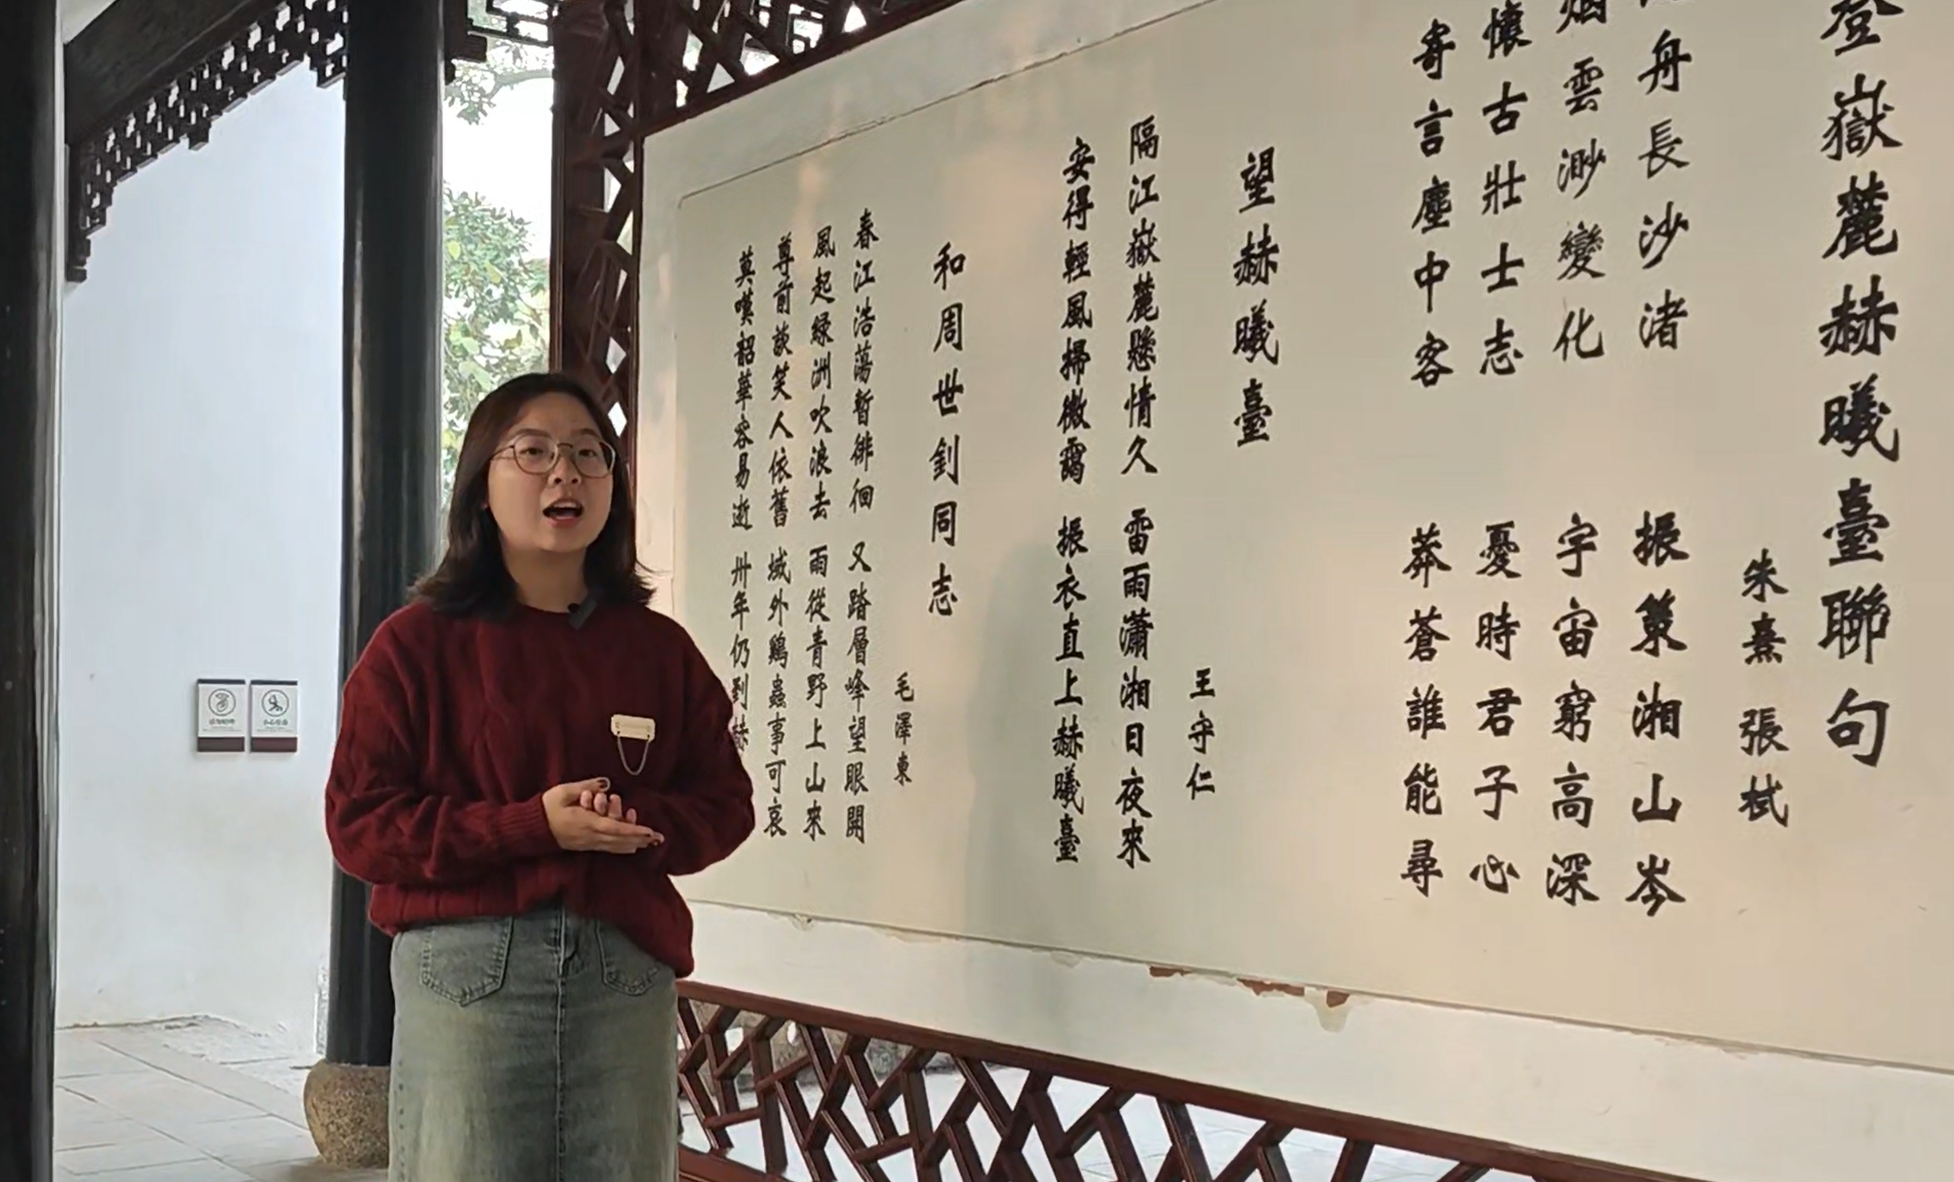 登嶽麓赫曦臺聯句
朱熹 張栻
舟長沙渚 振策湘山岑
烟雲渺變化 宇宙窮高深
懷古壯士志 憂時君子心
寄言塵中客 莽蒼誰能尋
望赫曦臺
王守仁
隔江嶽麓懸情久 雷雨瀟湘日夜來
安得輕風掃微靄 振衣直上赫曦臺
和周世釗同志
毛澤東
春江浩蕩暫徘徊 又踏層峰望眼開
風起綠洲吹浪去 雨從青野上山來
尊前談笑人依舊 域外鷄蟲事可哀
莫嘆韶華容易逝 卅年仍到赫